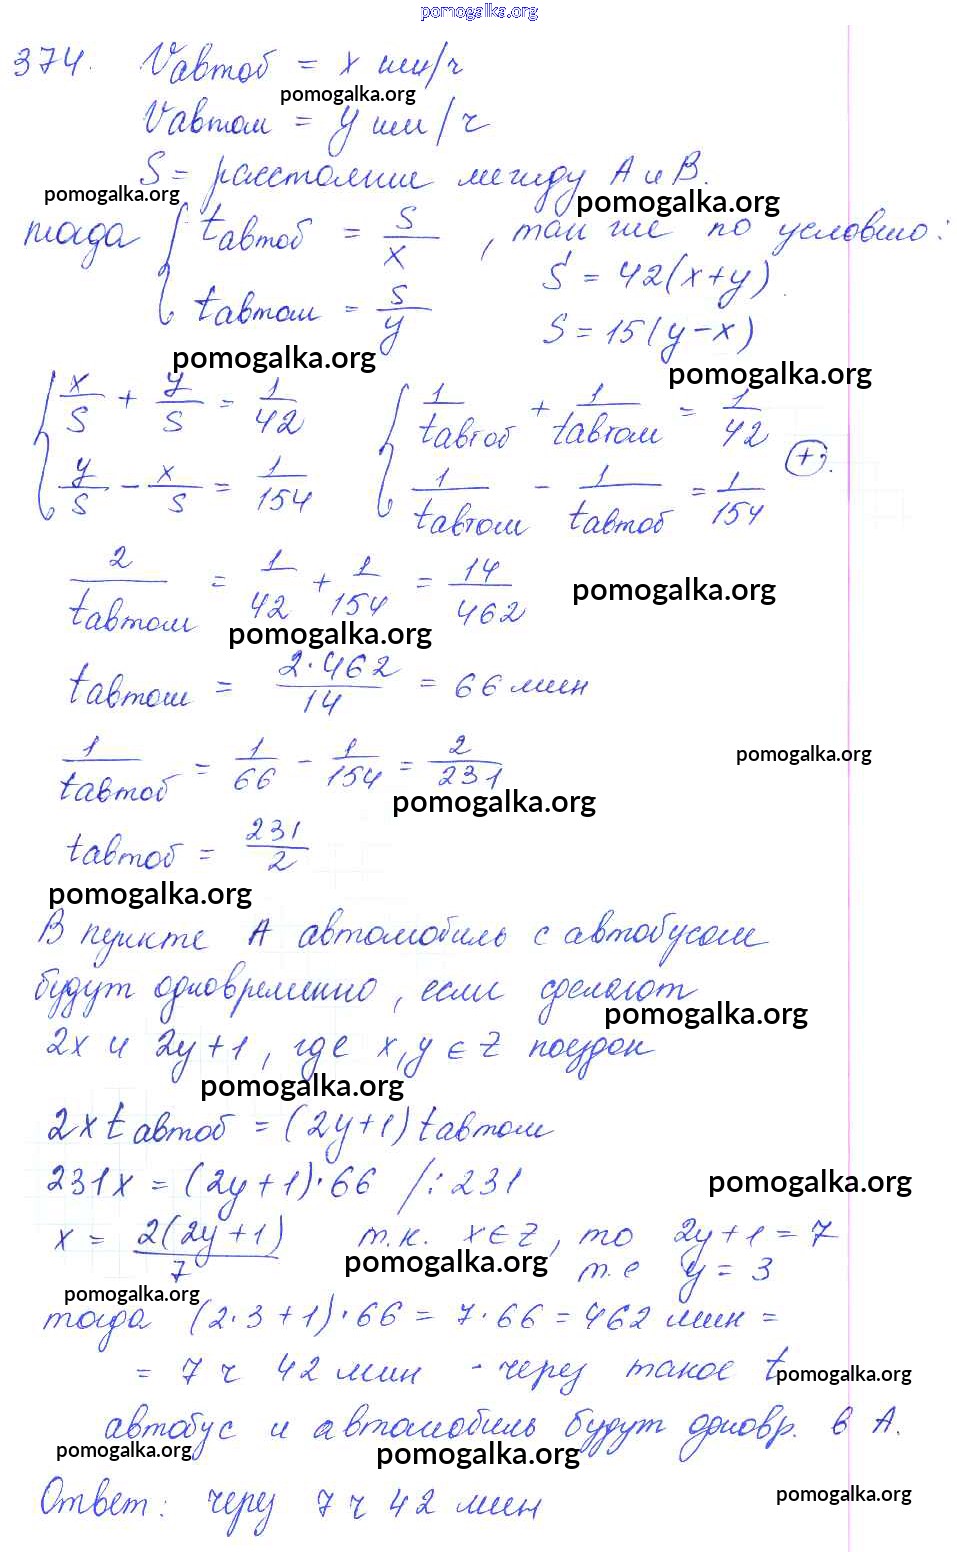 pomogalka.org
374. Vавтоб = x км/ч
pomogalka.org
Vавтом = y км/ч
S = расстояние между A и B.
pomogalka.org pomogalka.org
тогда { tавтоб = S/x , так же по условию:
S = 42(x+y)
tавтом = S/y
S = 15(y-x)
pomogalka.org pomogalka.org
{ x/S + y/S = 1/42 { 1/tавтоб + 1/tавтом = 1/42
(+).
y/S - x/S = 1/154 1/tавтом - 1/tавтоб = 1/154
2/tавтом = 1/42 + 1/154 = 14/462
pomogalka.org
pomogalka.org
tавтом = 2·462/14 = 66 мин
1/tавтоб = 1/66 - 1/154 = 2/231
pomogalka.org
pomogalka.org
tавтоб = 231/2
pomogalka.org
В пункте A автомобиль с автобусом
будут одновременно, если сделают
pomogalka.org
2x и 2y+1, где x,y ∈ Z поездок
pomogalka.org
2x tавтоб = (2y+1) tавтом
231x = (2y+1)·66 /:231
pomogalka.org
x = 2(2y+1)/7 т.к. x∈Z, то 2y+1 = 7
pomogalka.org
т.е y = 3
pomogalka.org
тогда (2·3+1)·66 = 7·66 = 462 мин =
= 7 ч 42 мин - через такое t
pomogalka.org
автобус и автомобиль будут одновр. в A.
pomogalka.org pomogalka.org
Ответ: через 7 ч 42 мин
pomogalka.org